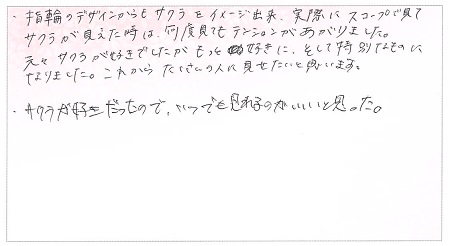 ・指輪のデザインからもサクラをイメージ出来、実際にスコープで見て
サクラが見えた時は、何度見てもテンションがあがりました。
元々サクラが好きでしたがもっと好きに、そして特別なものに
なりました。これからたくさんの人に見せたいと思います。
・サクラが好きだったので、いつでも見れるのがいいと思った。